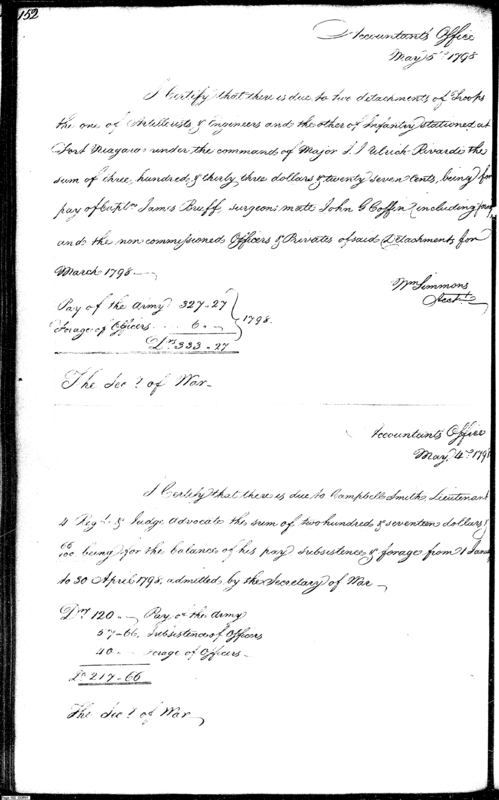 152
Accountants Office
May 5th 1798
I Certify that there is due to two detachments of Troops
the one of Artillerists & Engineers and the other of Infantry stationed at
Fort Niagara under the command of Major J. J. Ulrich Rivardi the
sum of three hundred & thirty three dollars & twenty seven Cents, being for
pay of Captn James Bruff, surgeons mate John G Coffin (including forage)
and the non commissioned Officers & Privates of said Detachments for
March 1798
Wm Simmons
Acct
Pay of the Army 327-27
Forage of Officers 6 - } 1798.
Drs 333-27
The Secy of War
Accountants Office
May 4th 1798
I Certify that there is due to Campbell Smith, Lieutenant
4 Regt & Judge Advocate the sum of two hundred & seventeen dollars &
66/100 being for the balance of his pay subsistence & forage from 1 Jany
to 30 April 1798. admitted by the Secretary of War
Drs 120. - Pay of the Army
57-66. Subsistence of Officers
40 - Forage of Officers
Drs 217-66
The Secy of War